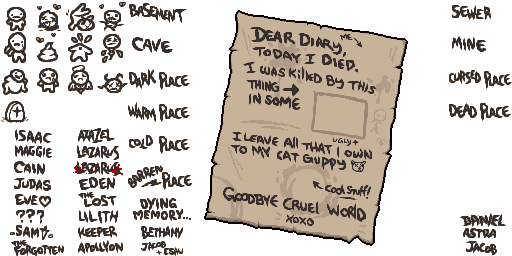 BASEMENT
CAVE
DARK PLACE
WARM PLACE
COLD PLACE
BARREN PLACE
ISAAC
MAGGIE
CAIN
JUDAS
EVE
???
SAMS
THE FORGOTTEN
AZAZEL
LAZARUS
LAZARUS
EDEN
THE LOST
LILITH
KEEPER
APOLLYON
DYING MEMORY...
BETHANY
JACOB + ESAU
DEAR DIARY,
ME
TODAY I DIED.
I WAS KILLED BY THIS
THING
IN SOME
UGLY
I LEAVE ALL THAT I OWN
TO MY CAT GUPPY
COOL STUFF!
GOODBYE CRUEL WORLD
XOXO
SEWER
MINE
CURSED PLACE
DEAD PLACE
ASTRA
JACOB